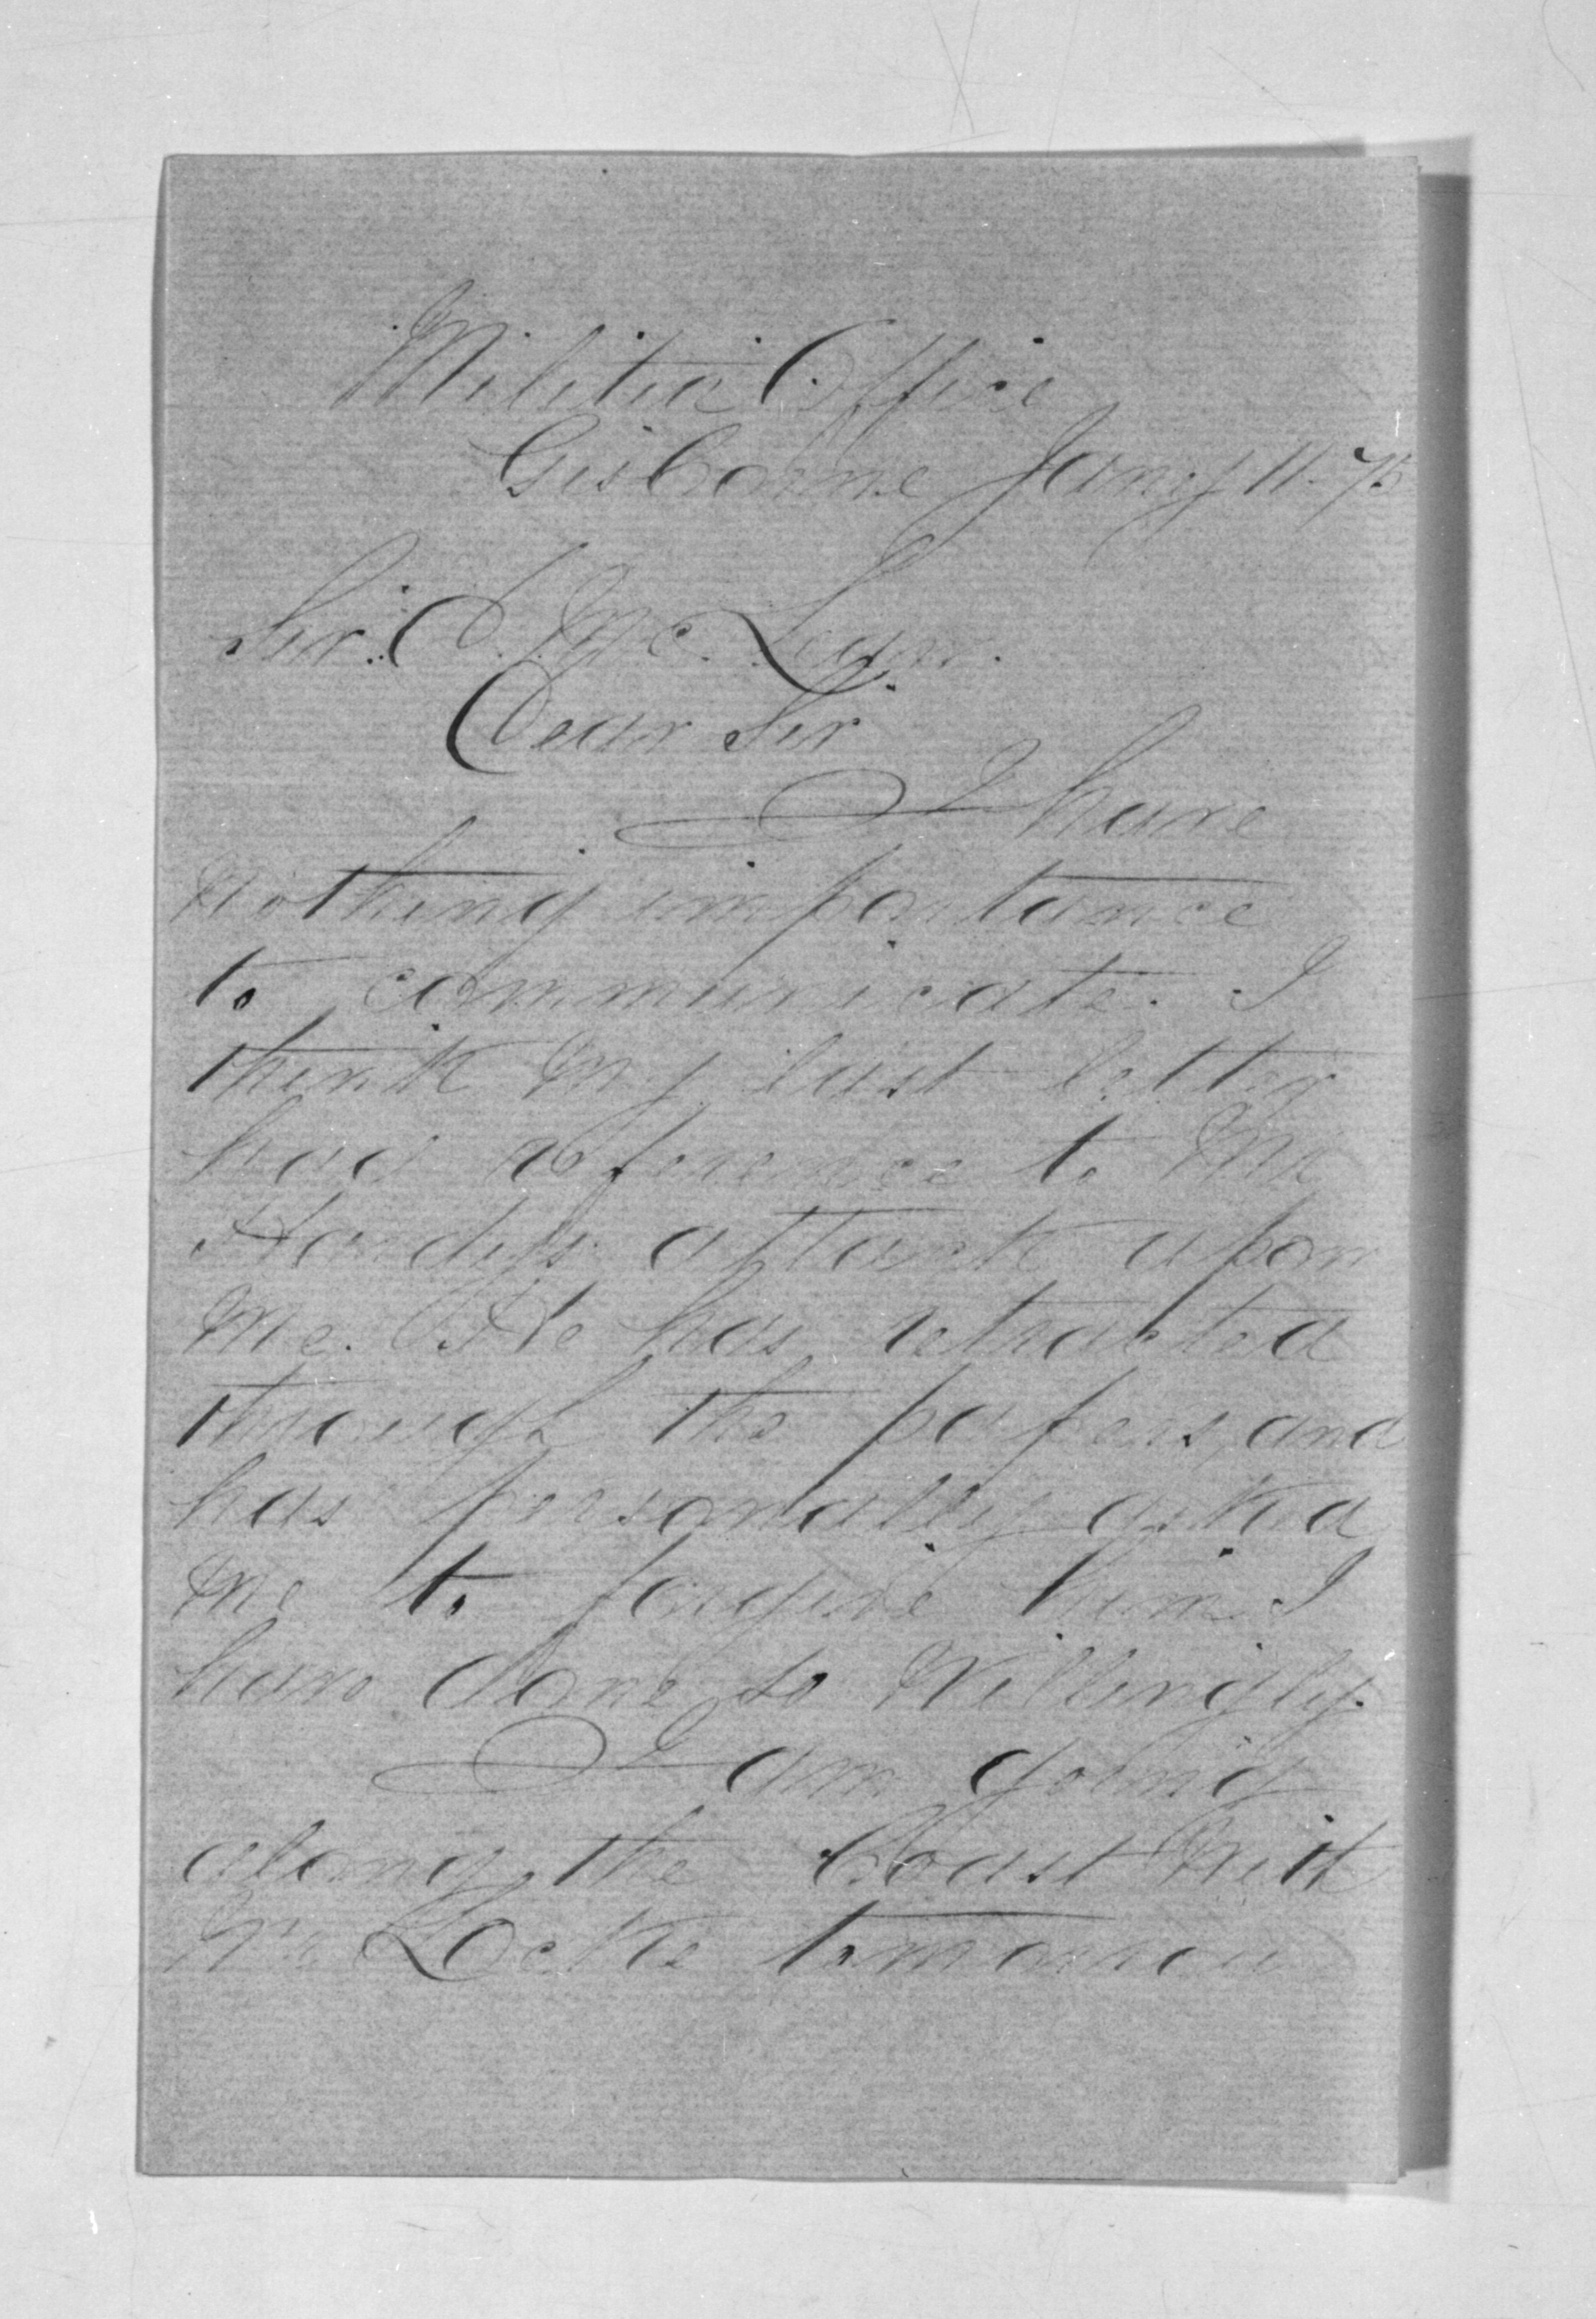 Militia Office
Gisborne Jany 11. 75
Sir. D. McLean.
Dear Sir
I have
nothing importance
to communicate. I
think my last letter
had reference to Mr
Hardys attack upon
me. He has retracted
through the papers, and
has personally asked
me to forgive him. I
have done so willingly.
I am going
along the Coast with
Mr Locke tomorrow